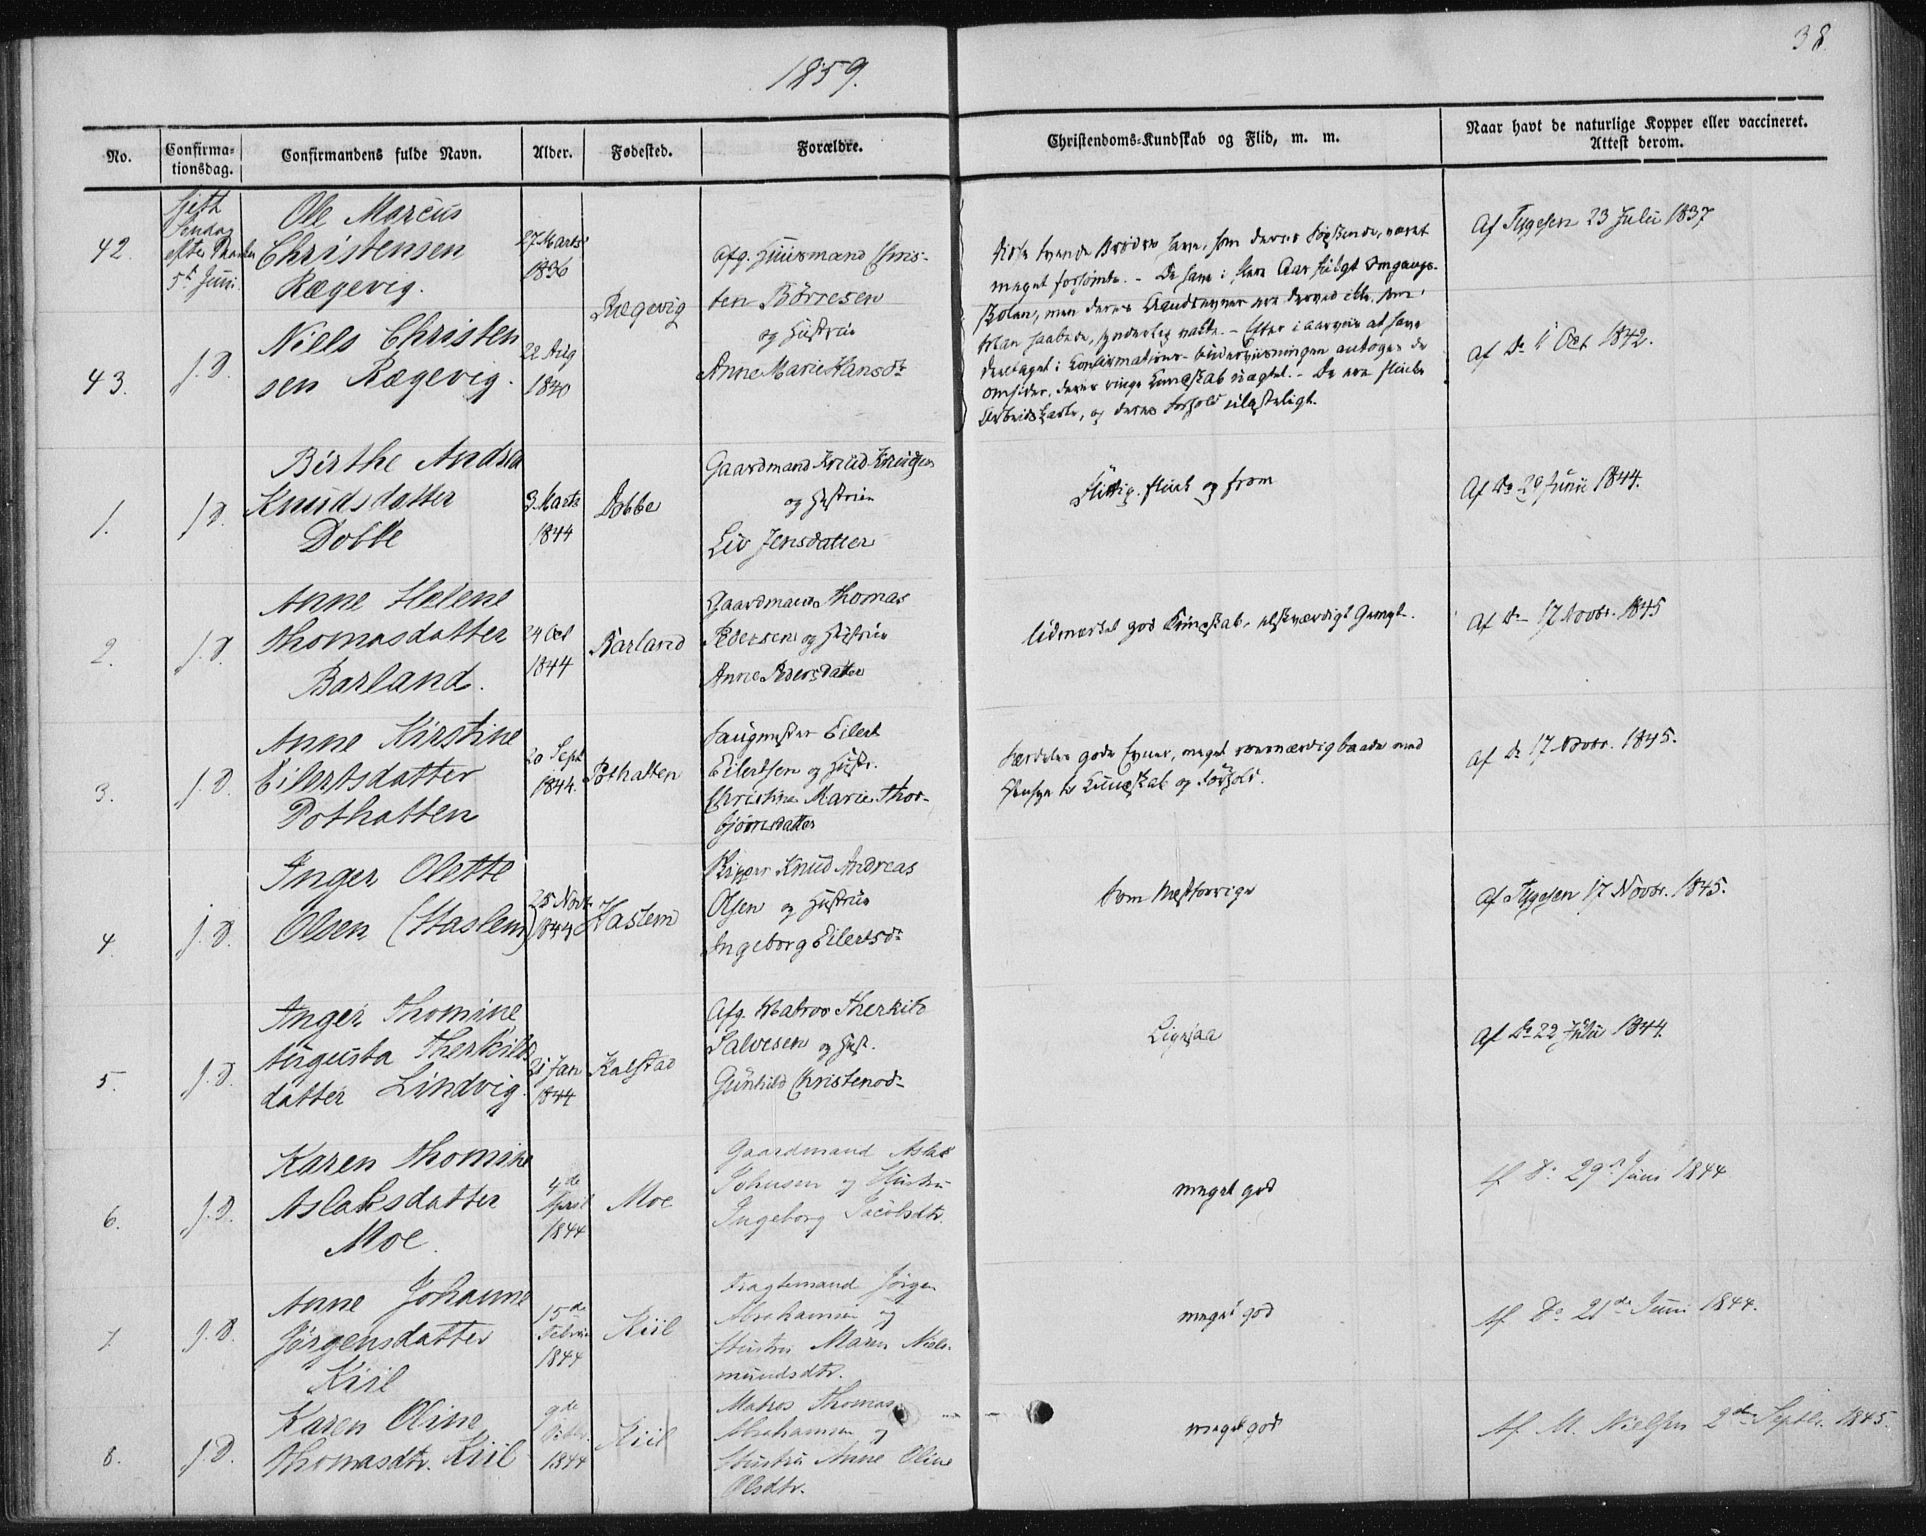 38.
1859.
No.
Confirma-
tionsdag.
Confirmandens fulde Navn.
Alder.
Fødested.
Forældre.
Christendoms-Kundskab og Flid, m. m.
Naar havt de naturlige Kopper eller vaccineret.
Attest derom.
42.
5t Juni
Ole Marcus
Christensen
Rægevig.
27 Marts
1836
Rægevig
Afg. Huusmand Chris-
ten Börresen
og Hustrue
Anne Marie Hansdr
meget forsömte. - De have i flere Aar fulgt Omgangs-
Skolen, men deres
deeltaget i Confirmations-Underviisningen antoges de
omsider, deres ringe Kundskab uagtet. - De ere flinke
og deres Forhold ulasteligt.
Af Tygesen 23 Julii 1837
43.
f. D.
Niels Christen
sen Rægevig.
22 Aug
1840
Af Do 11 Oct 1842.
1.
f. D.
Birthe Andrea
Knudsdatter
Dobbe
3 Marts
1844
Dobbe
Gaardmand Knud Knudsen
og Hustrue
Liv Jensdatter
Flittig, flink og from
Af Do 29 Junii 1844.
2.
f. D.
Anne Helene
Thomasdatter
Barland.
24 Oct
1844
Barland
Gaardmand Thomas
Pedersen og Hustrue
Anne Pedersdatter
Udmærket god Kundskab, elskværdigt Gemyt.
Af Do 17 Novbr. 1845
3.
f. D.
Anne Kirstine
Eilertsdatter
Pothatten
20 Sept
1844.
Pothatten
Laugmester Eilert
Eilertsen og Hustr.
Christine Marie Thor-
björnsdatter
Særdeles gode Evner, meget roesværdig baade med
Hensyn til Kundskab og Forhold.
Af Do 17 Novbr. 1845.
4.
f. D.
Inger Olette
Olsen (Haslem)
25 Novb
1844
Haslem
Skipper Knud Andreas
Olsen og Hustrue
Ingeborg Eilertsdr
Som Næstforrige
Af Tygesen 17 Novbr. 1845.
5.
f. D.
Inger Thomine
Augusta Therkilds
datter Lindvig.
21 Jan
1844
Kalstad
Afg. Matros Therkild
Salvesen og Hust.
Gunhild Christensdr
Ligesaa
Af Do 22 Julii 1844.
6.
f. D.
Karen Thomine
Aslaksdatter
Moe.
4de
April
1844
Moe
Gaardmand Aslak
Johnsen og Hustru
Ingeborg Jacobsdtr.
meget god
Af Do 29de Juni 1844
7
f. D.
Anne Johanne
Jörgensdatter
Kiil
15de
Februar
1844
Kiil
Fragtemand Jörgen
Abrahamsen og
Hustru Maren Niels-
mundsdtr.
meget god
Af Do 21de Juni 1844.
8.
f. D.
Karen Oline
Thomasdtr. Kiil
9de
1844
Kiil
Matros Thomas
Abrahamsen og
Hustru Anne Oline
Olsdtr.
meget god
Af M. Nielsen 2de Septbr. 1845